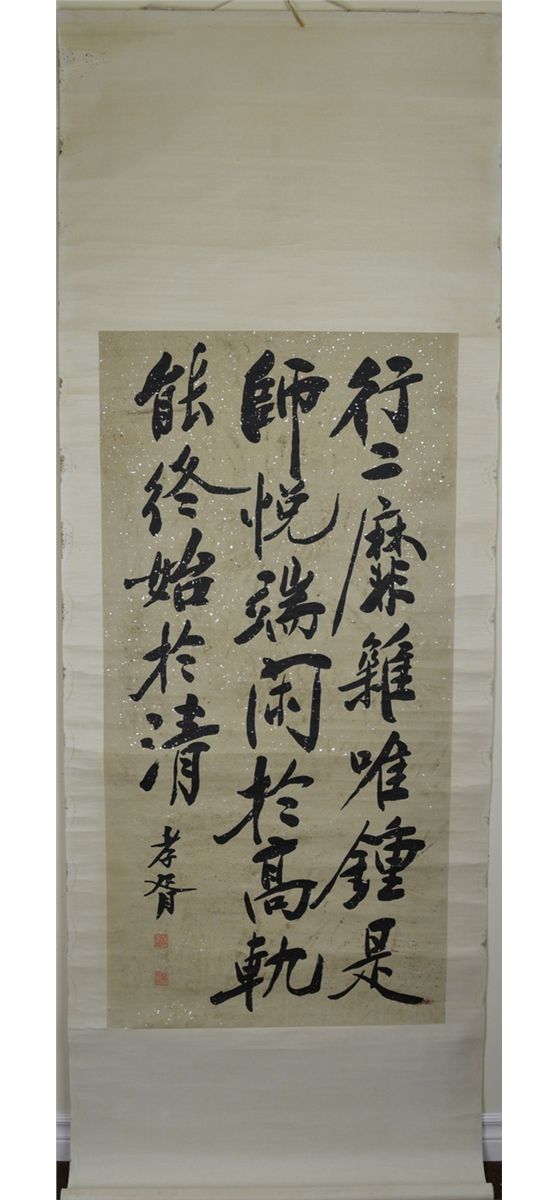 行二靡雜唯鍾是
師悅端閑於高軌
能終始於清
孝胥